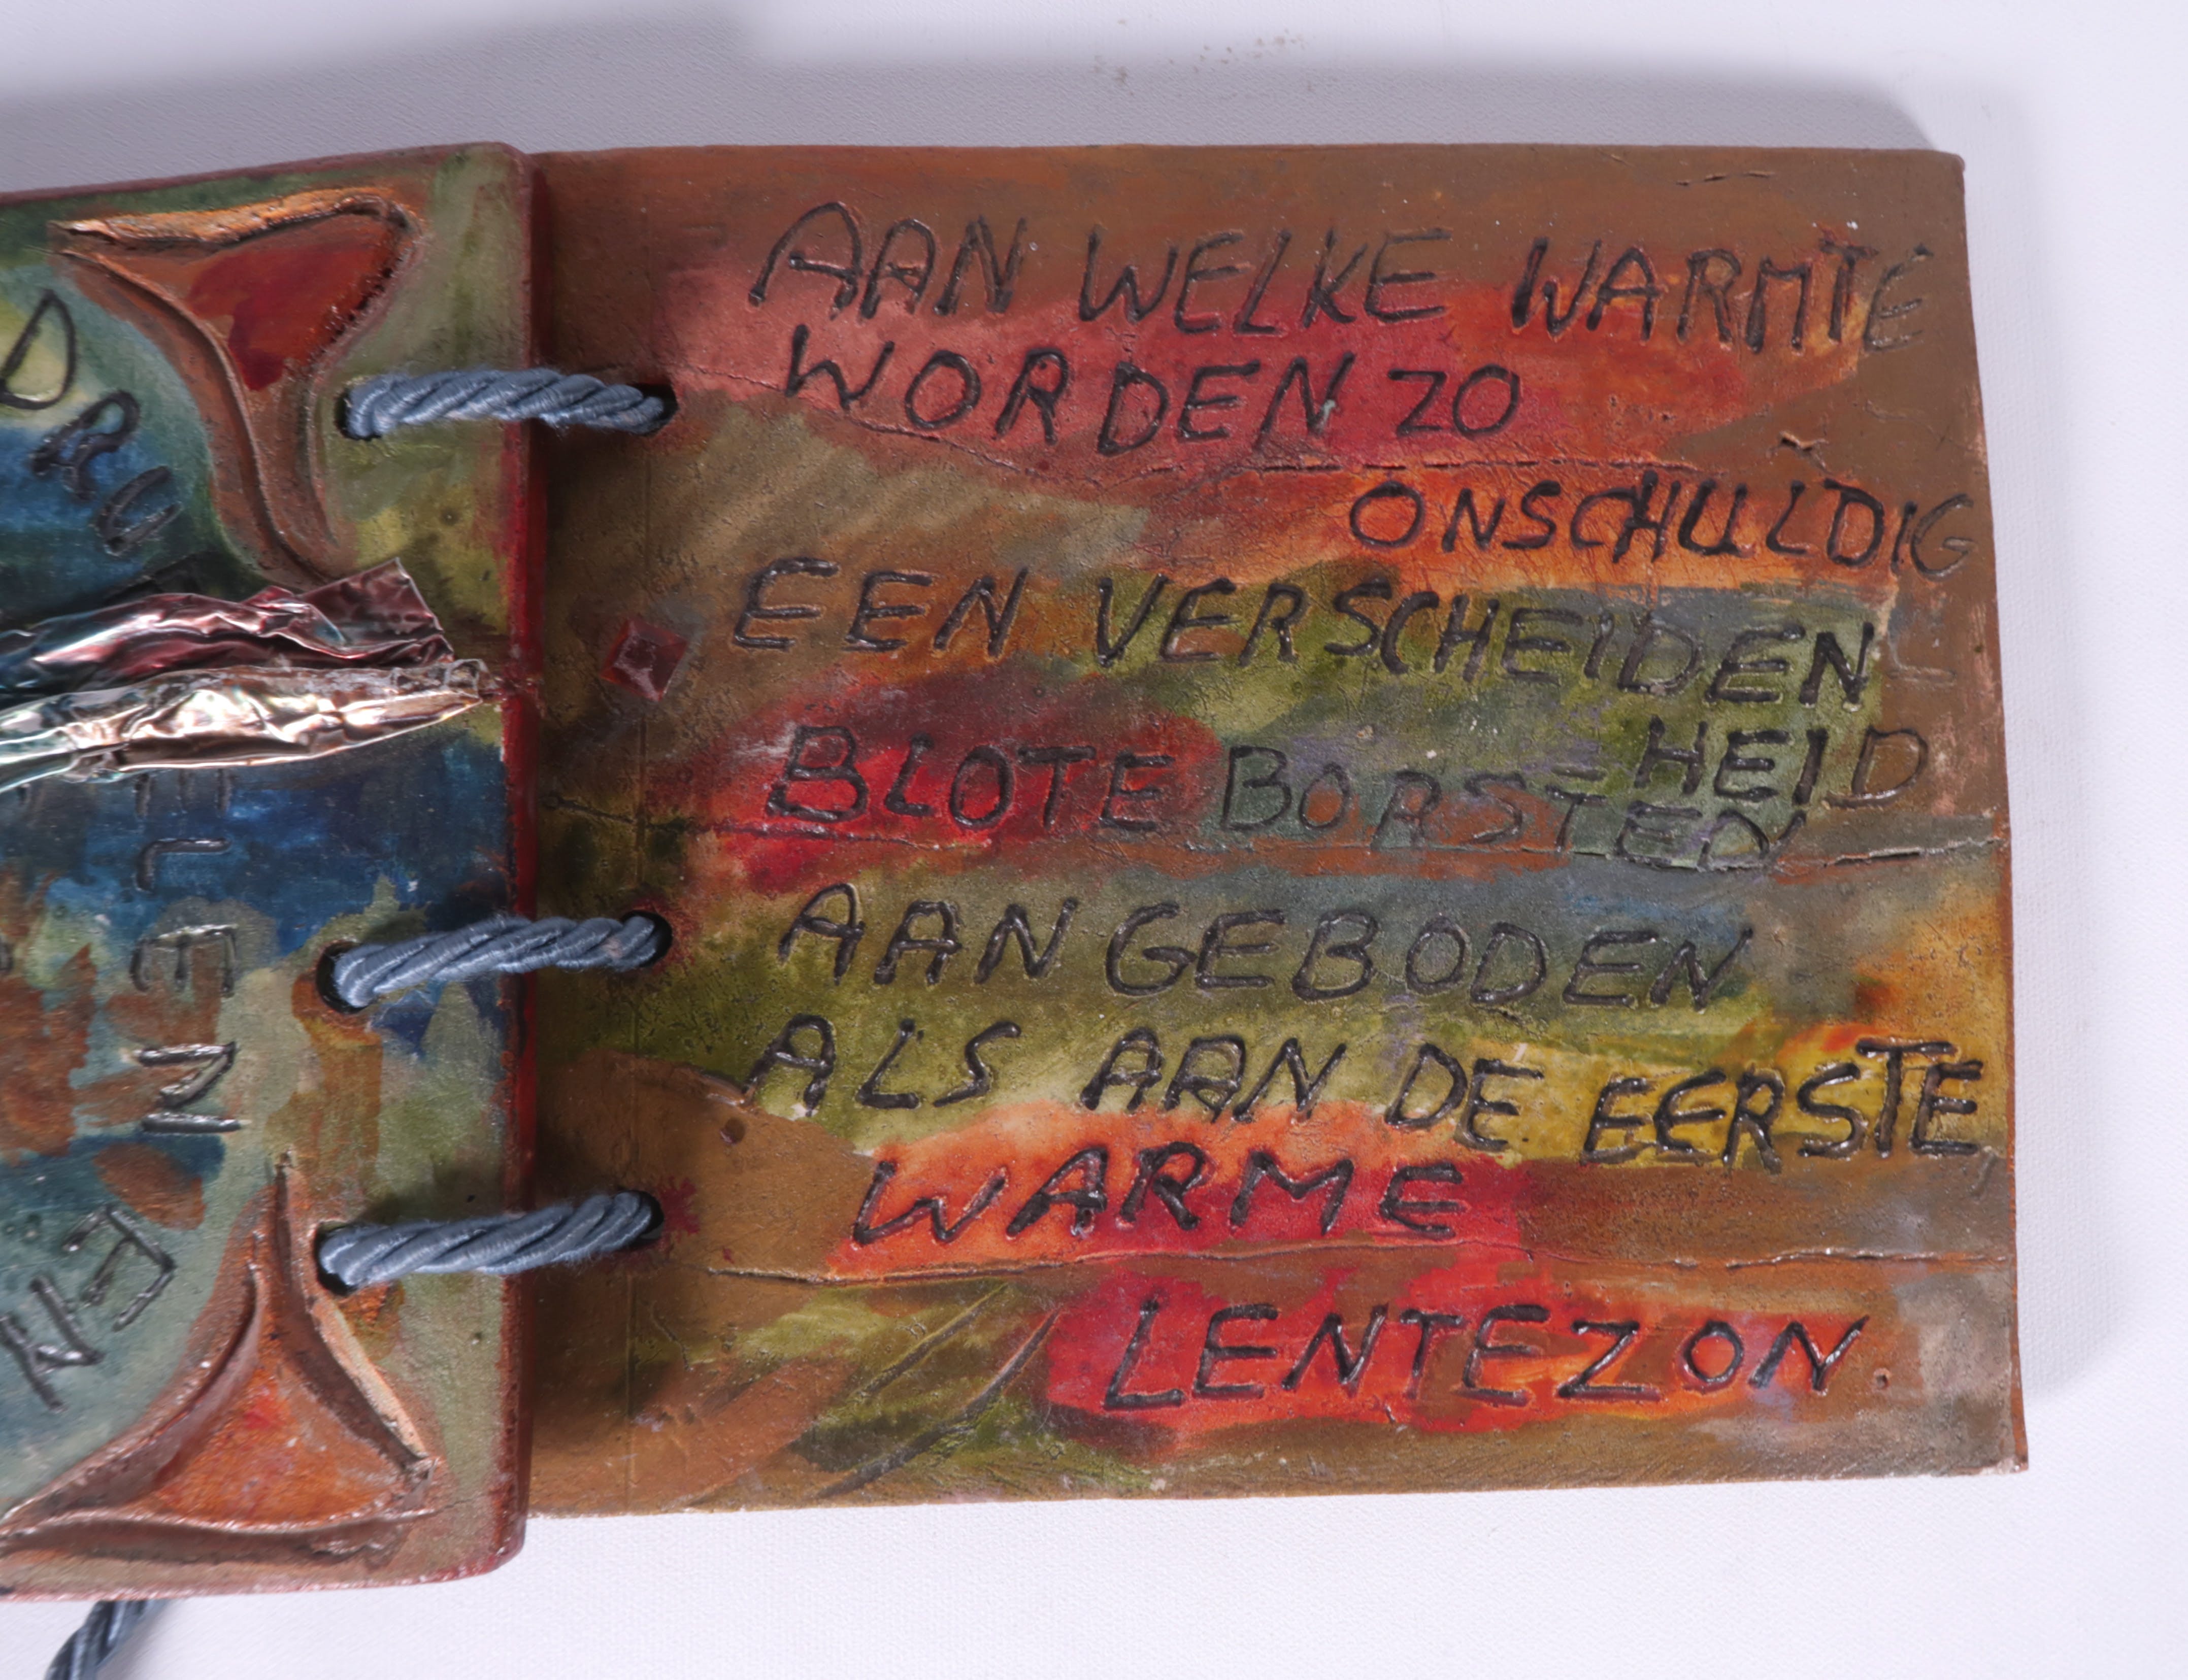 AAN WELKE WARMTE
WORDEN ZO
ONSCHULDIG
EEN VERSCHEIDEN
-HEID
BLOTE BORSTEN
AANGEBODEN
ALS AAN DE EERSTE,
WARME
LENTEZON.